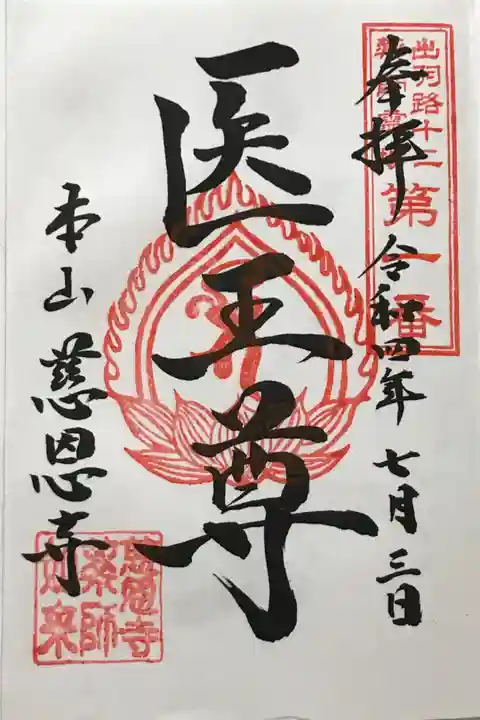 出羽路十二
薬師霊場
第一番
奉拝 令和四年 七月三日
医王尊
本山 慈恩寺
慈恩寺
薬師
如来